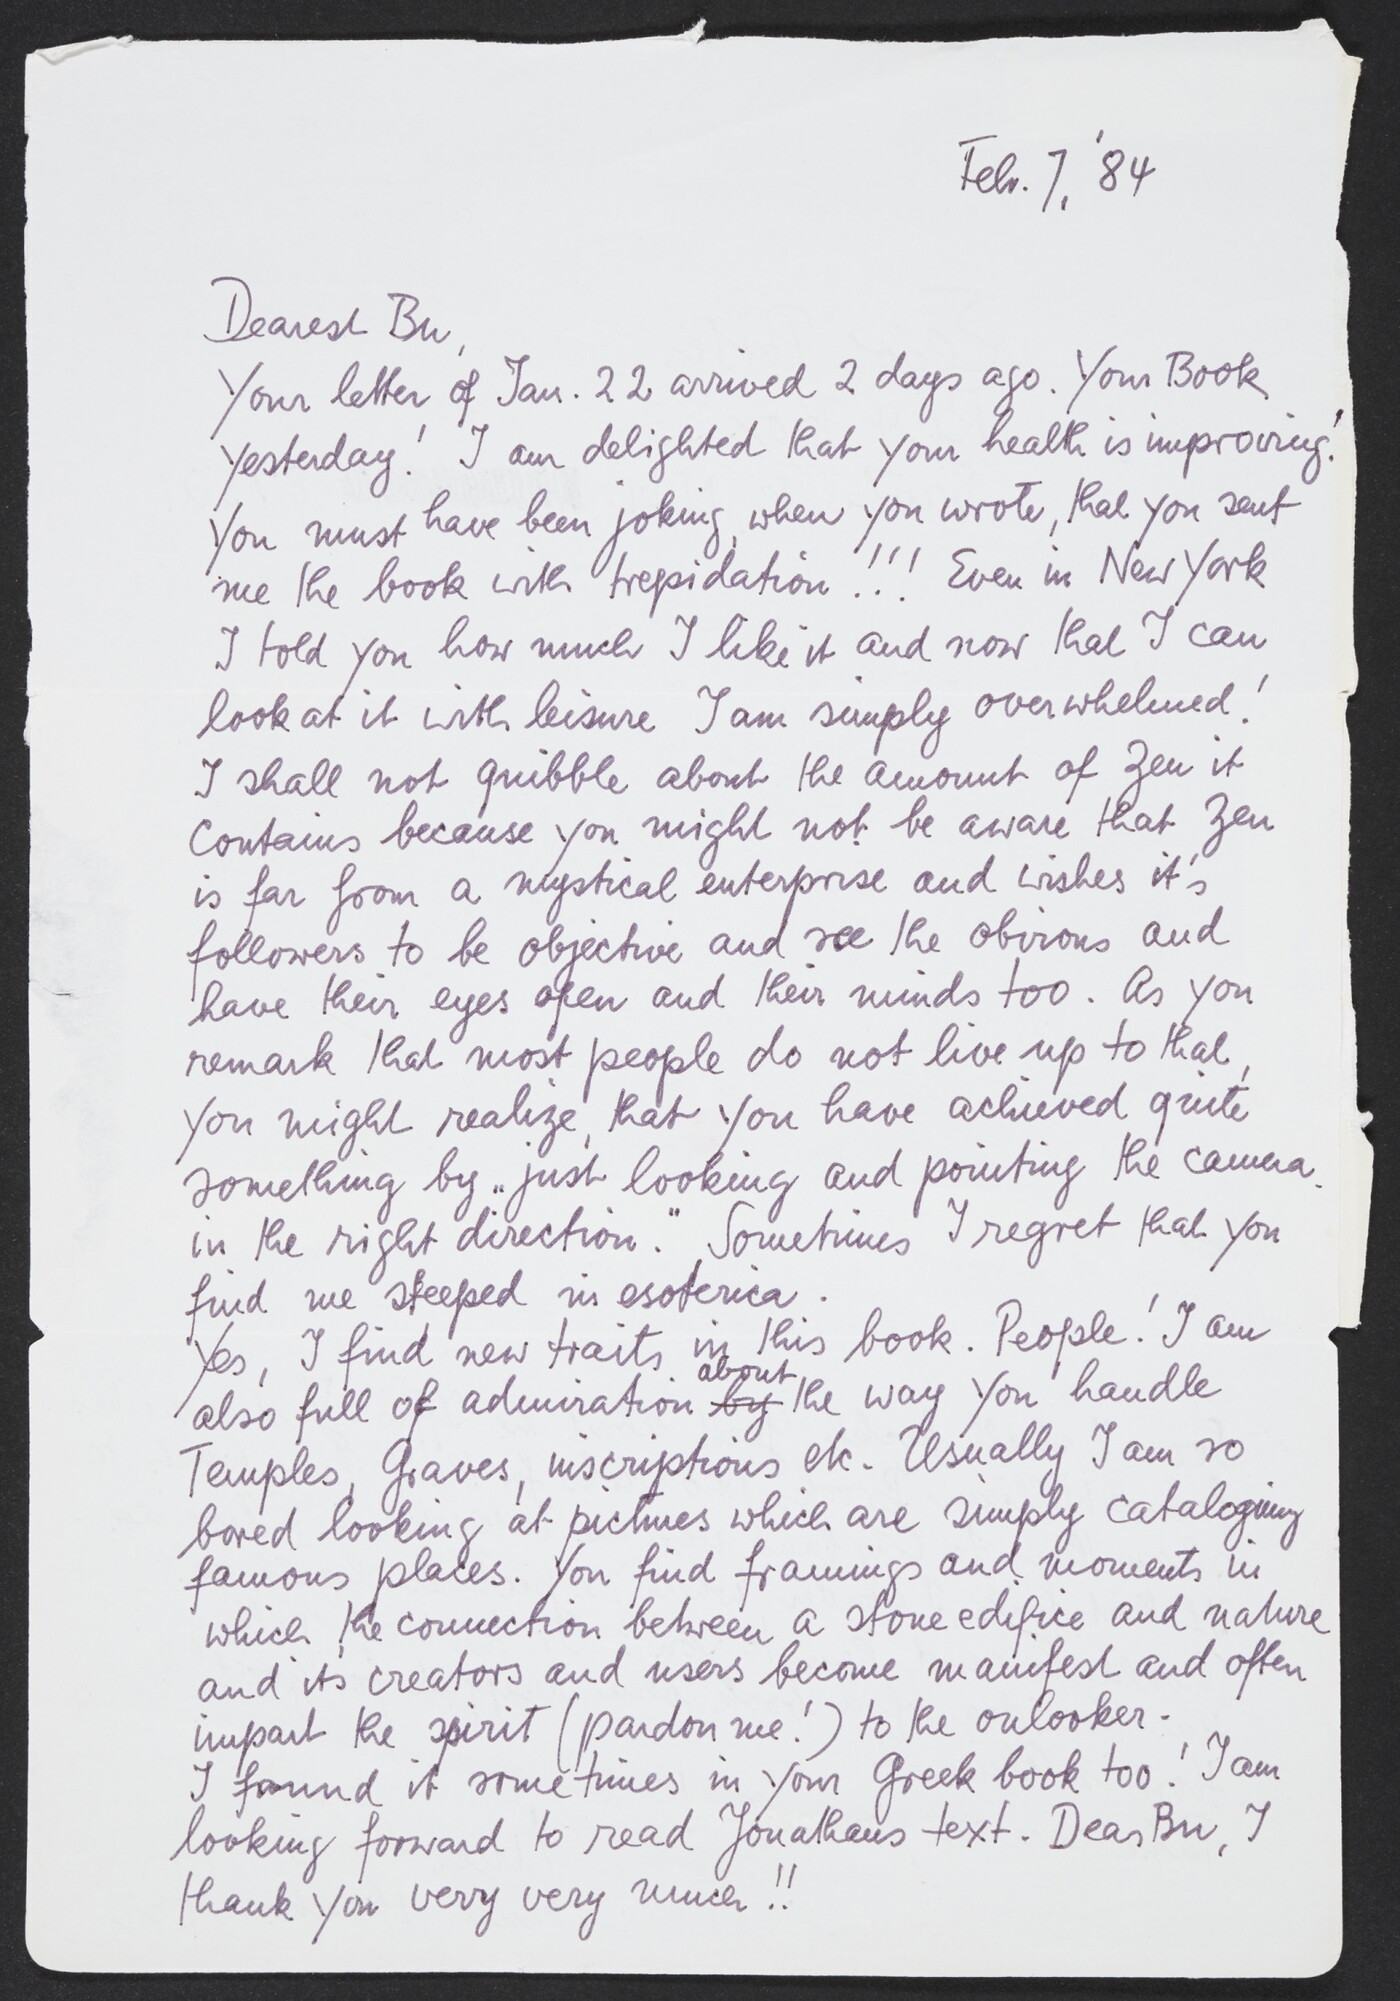 Feb. 7, '84
Dearest Bu,
Your letter of Jan. 22 arrived 2 days ago. Your Book
yesterday! I am delighted that your health is improving!
You must have been joking, when you wrote, that you sent
me the book with trepidation!!! Even in New York
I told you how much I like it and now that I can
look at it with leisure I am simply overwhelmed!
I shall not quibble about the amount of Zen it
contains because you might not be aware that Zen
is far from a mystical enterprise and wishes it's
followers to be objective and see the obvious and
have their eyes open and their minds too. As you
remark that most people do not live up to that,
you might realize, that you have achieved quite
something by „just looking and pointing the camera
in the right direction." Sometimes I regret that you
find me steeped in esoterica.
Yes, I find new traits in this book. People! I am
about
also full of admiration by the way you handle
Temples, Graves, inscriptions etc. Usually I am so
bored looking at pictures which are simply cataloging
famous places. You find framings and moments in
which the connection between a stone edifice and nature
and its creators and users become manifest and often
impart the spirit (pardon me!) to the onlooker.
I found it sometimes in your Greek book too! I am
looking forward to read Jonathans text. Dear Bu, I
thank you very very much!!